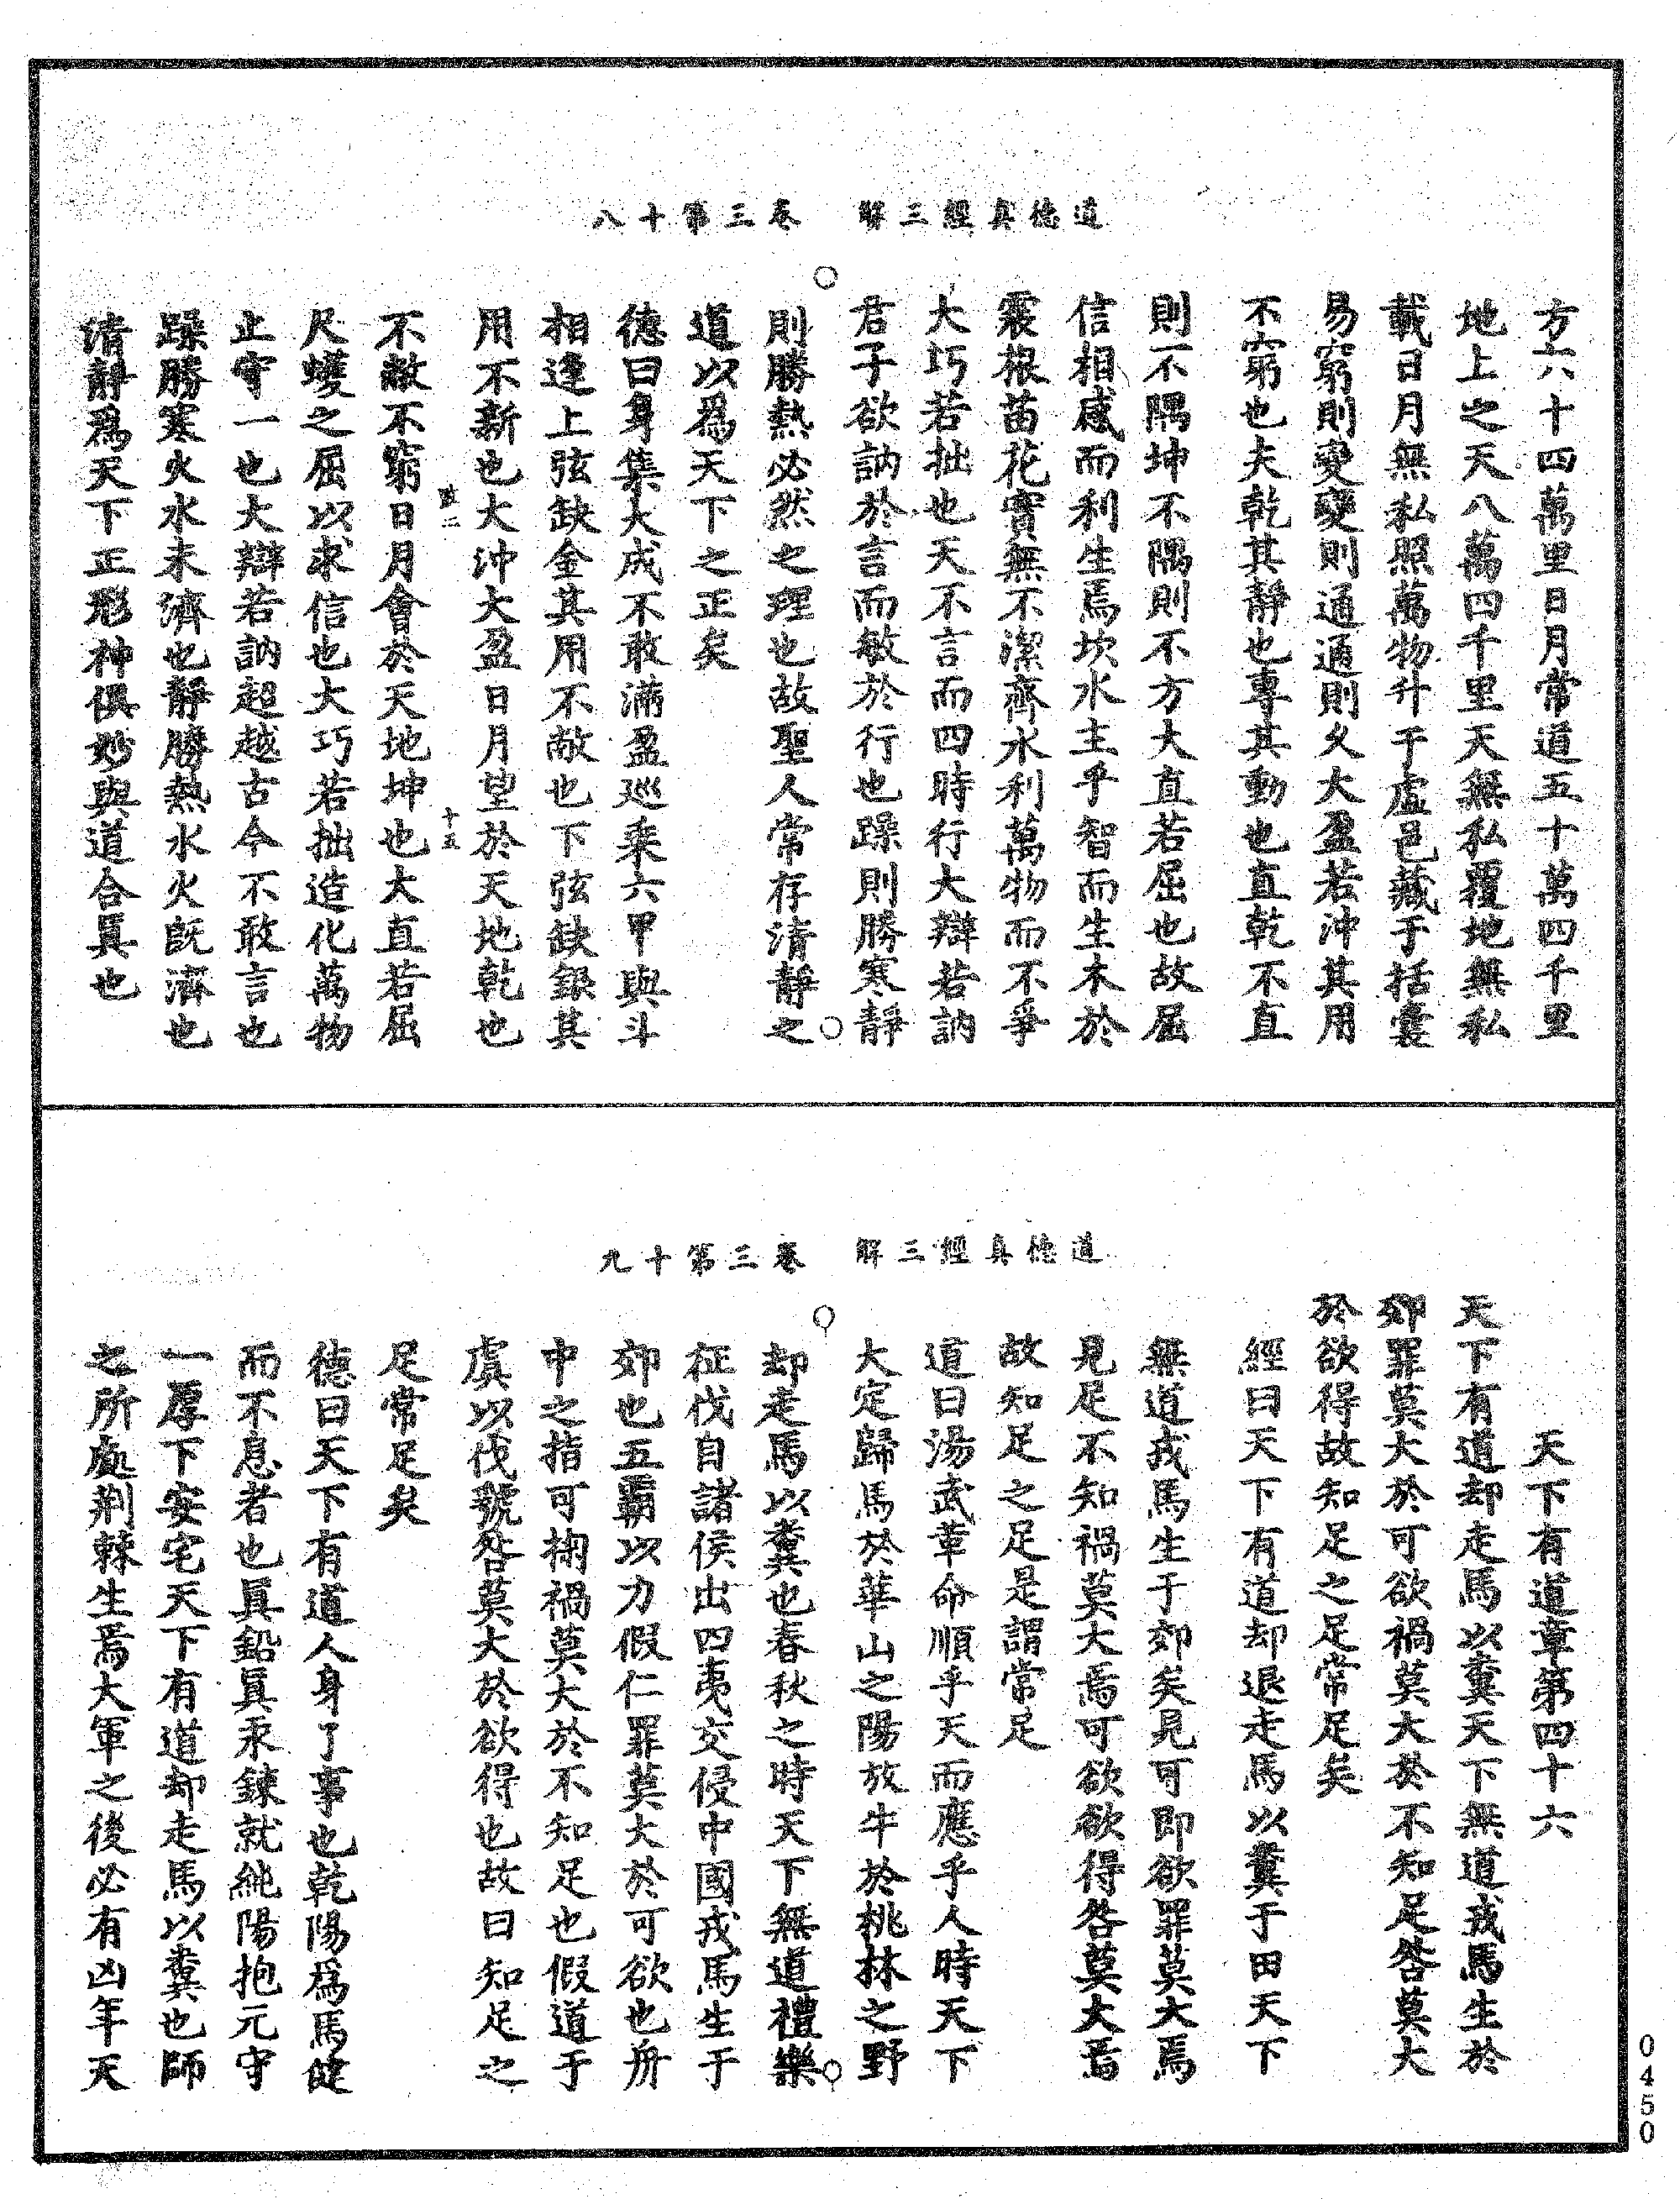 道德真經三解　卷三第十八
方六十四萬里日月常道五十萬四千里
地上之天八萬四千里天無私覆地無私
載日月無私照萬物升于虛邑藏于括囊
易窮則變變則通通則久大盈若沖其用
不窮也夫乾其靜也專其動也直乾不直
則不隅坤不隅則不方大直若屈也故屈
信相感而利生焉坎水主乎智而生木於
震根苗花實無不潔齊水利萬物而不爭
大巧若拙也天不言而四時行大辯若訥
君子欲訥於言而敏於行也躁則勝寒靜
則勝熱必然之理也故聖人常存清靜之
道以為天下之正矣
德曰身集大成不敢滿盈巡乘六甲與斗
相逢上弦缺金其用不敝也下弦缺銀其
用不新也大沖大盈日月望於天地乾也
十五
不敝不窮日月會於天地坤也大直若屈
尺蠖之屈以求信也大巧若拙造化萬物
止守一也大辯若訥超越古今不敢言也
躁勝寒火水未濟也靜勝熱水火既濟也
清靜為天下正形神俱妙與道合真也
道德真經三解　卷三第十九
天下有道章第四十六
天下有道却走馬以糞天下無道戎馬生於
郊罪莫大於可欲禍莫大於不知足咎莫大
於欲得故知足之足常足矣
經曰天下有道却退走馬以糞于田天下
無道戎馬生于郊矣見可即欲罪莫大焉
見足不知禍莫大焉可欲欲得咎莫大焉
故知足之足是謂常足
道曰湯武革命順乎天而應乎人時天下
大定歸馬於華山之陽放牛於桃林之野
却走馬以糞也春秋之時天下無道禮樂
征伐自諸侯出四夷交侵中國戎馬生于
郊也五霸以力假仁罪莫大於可欲也舟
中之指可掬禍莫大於不知足也假道于
虞以伐虢咎莫大於欲得也故曰知足之
足常足矣
德曰天下有道人身了事也乾陽為馬健
而不息者也真鉛真汞鍊就純陽抱元守
一厚下安宅天下有道却走馬以糞也師
之所處荆棘生焉大軍之後必有凶年天
0450